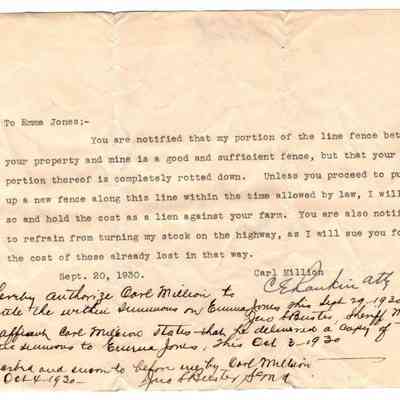 To Emma Jones;-
You are notified that my portion of the line fence bet
your property and mine is a good and sufficient fence, but that your
portion thereof is completely rotted down. Unless you proceed to pu
up a new fence along this line within the time allowed by law, I will
so and hold the cost as a lien against your farm. You are also notif
to refrain from turning my stock on the highway, as I will sue you fo
the cost of those already lost in that way.
Sept. 20, 1930. Carl Million
C E Rankin Atty
ereby authorize Carl Million to
the within summons on Emma Jones this Sept 29, 1930
Geo S Buster, Sheriff M
affiant Carl Million states that he delivered a copy of
summons to Emma Jones. This Oct 3 - 1930
and sworn to before me by Carl Million
Oct 4 - 1930 - Geo S Buster